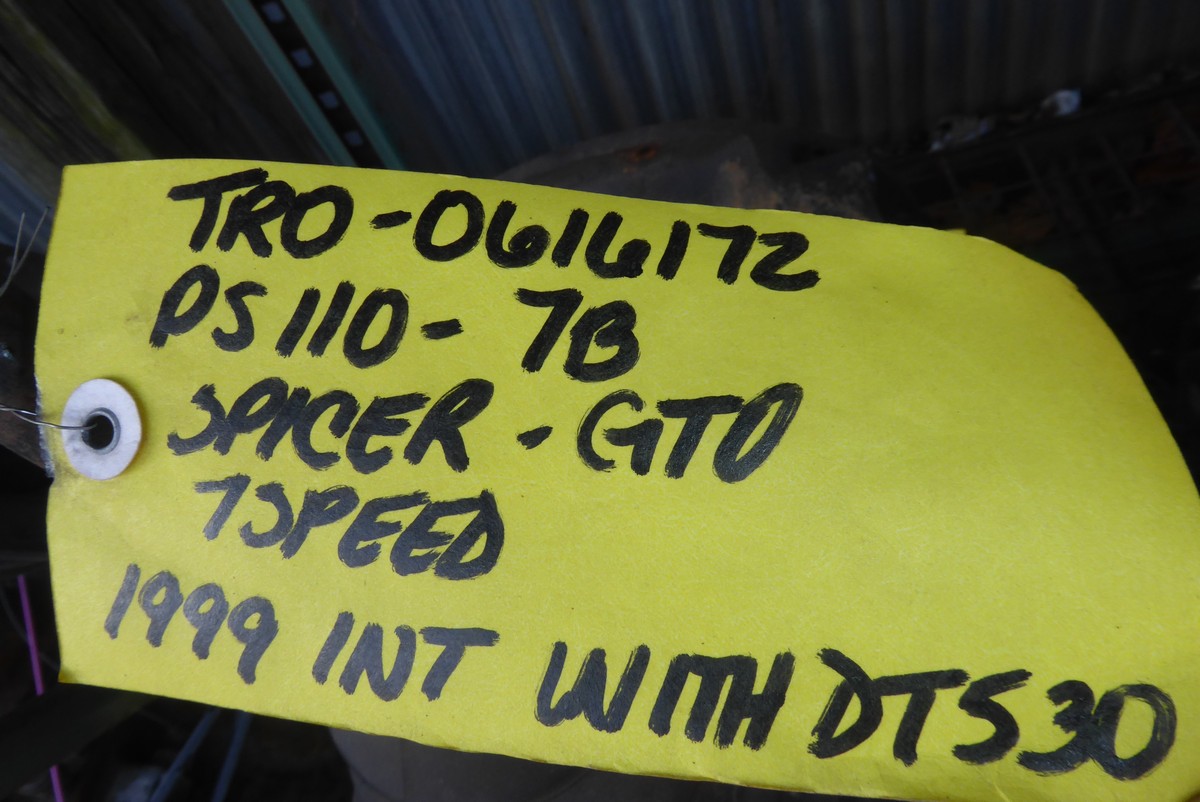 TRO-0616172
PS110-7B
SPICER-GTO
7SPEED
1999 INT WITH DT530